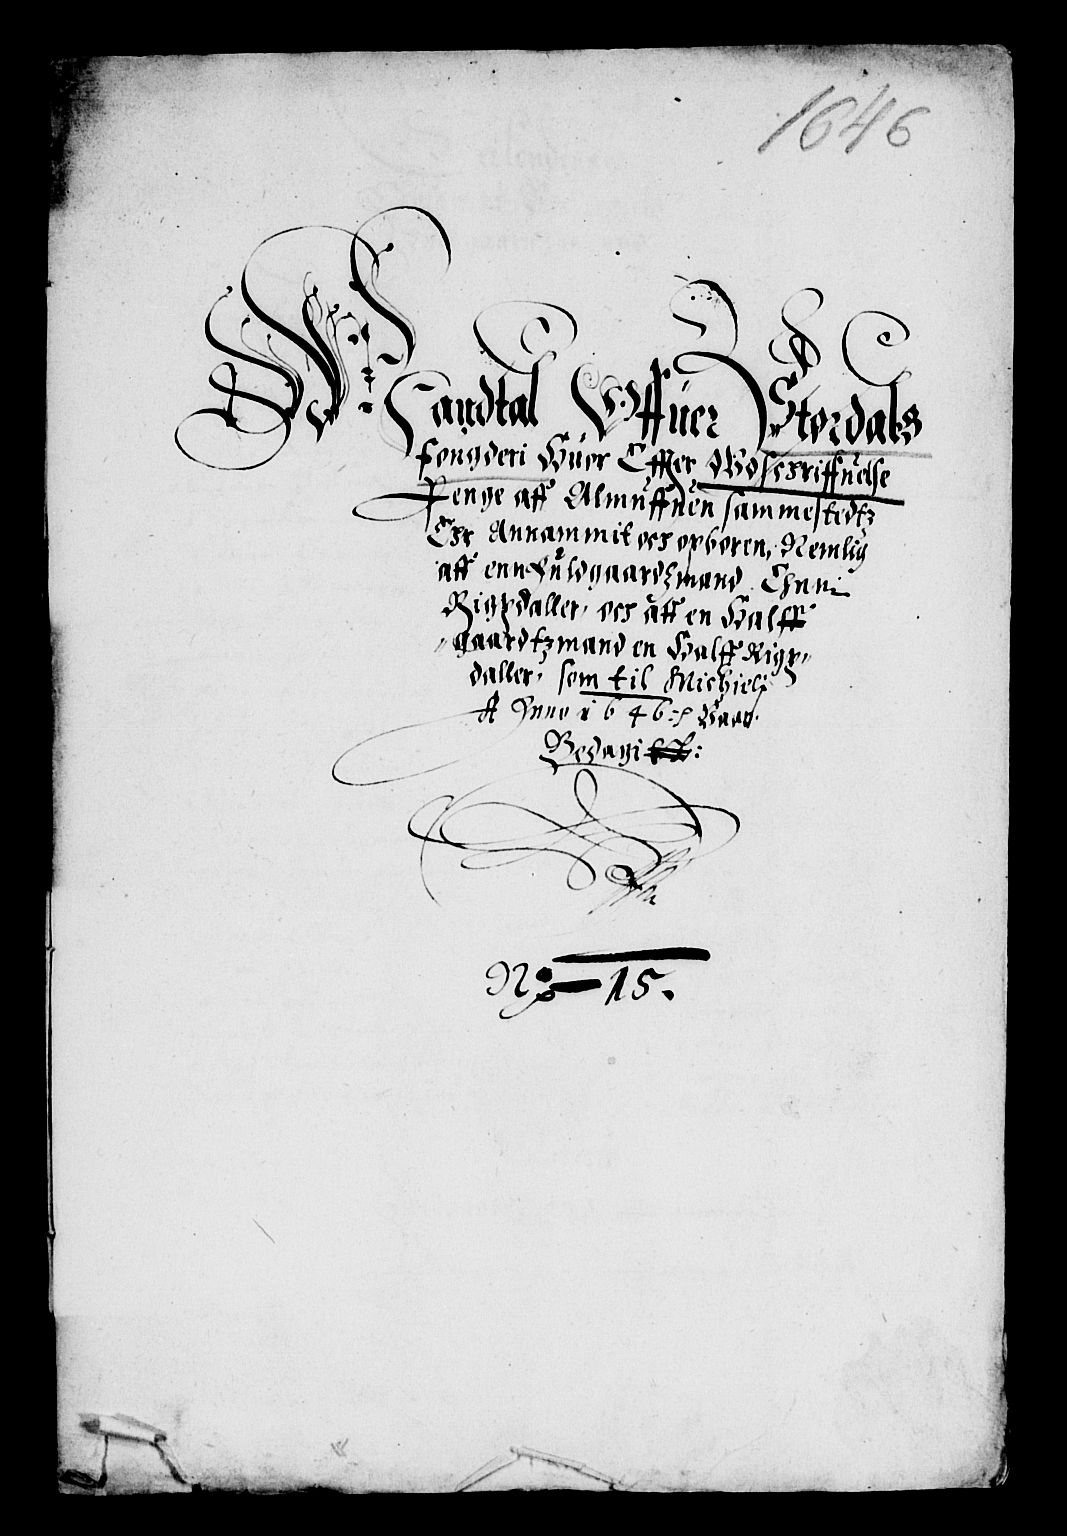 1646
Mandtal Offuer Størdals
fougderi Huor Effter Udschriffuelse
Penge aff Almuffuen sammestedtz
Ehr Annammit och opboren, Nemlig
aff enn fuldgaardtzmand Enn
Rigzdaller, och aff en Halff
gaardtzmand en Halff Rigs-
daller, som til Michielj
A Anno 1646 Vaar
Bedagit:
No 15.